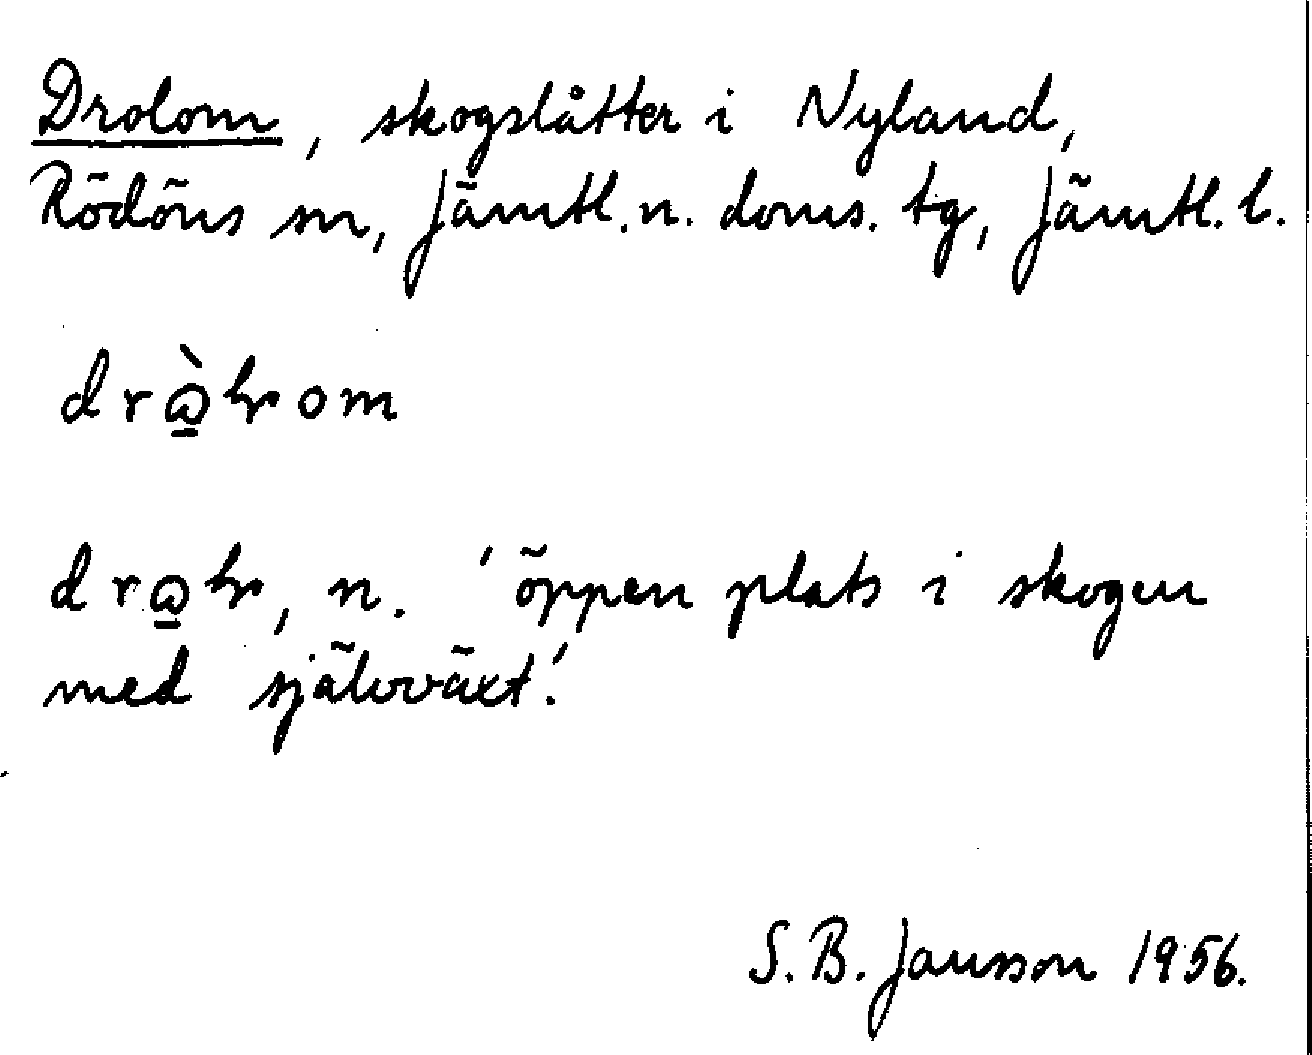 Drolom, skogslåtter i Nyland,
Rödöns sn, Jämtl. n. doms. tg, Jämtl. l.
n. 'öppen plats i skogen
med självväxt.'
S. B. Jansson 1956.